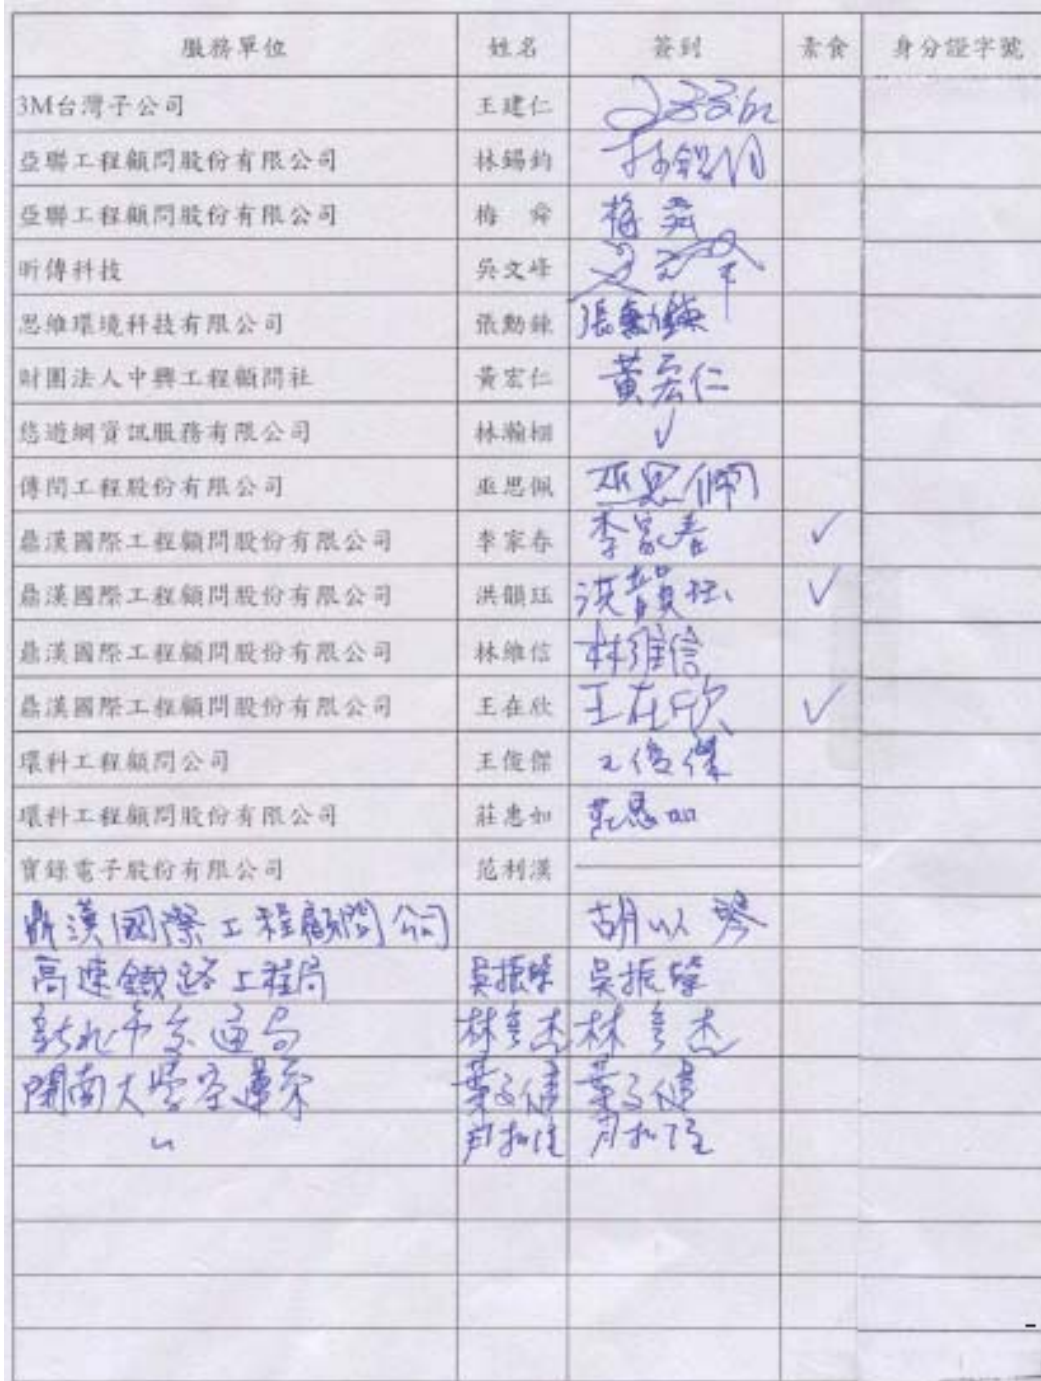 服務單位 姓名 簽到 素食 身分證字號
3M台灣子公司 王建仁
亞聯工程顧問股份有限公司 林錫鈞 林錫鈞
亞聯工程顧問股份有限公司 梅 舜 梅 舜
昕傳科技 吳文峰
思維環境科技有限公司 張勳
財團法人中興工程顧問社 黃宏仁 黃宏仁
悠遊網資訊服務有限公司 林瀚 ✓
傳閎工程股份有限公司 巫思佩 巫思佩
鼎漢國際工程顧問股份有限公司 李家春 李家春 ✓
鼎漢國際工程顧問股份有限公司 洪韻珏 洪韻珏 ✓
鼎漢國際工程顧問股份有限公司 林維信 林維信
鼎漢國際工程顧問股份有限公司 王在欣 王在欣 ✓
環科工程顧問公司 王俊傑 王俊傑
環科工程顧問股份有限公司 莊惠如 莊惠如
寶錄電子股份有限公司 范利漢
鼎漢國際工程顧問公司 胡以琴
高速鐵路工程局 吳振 吳振
新北市交通局 林 杰 林 杰
開南大學空運系 葉 健 葉 健
〃